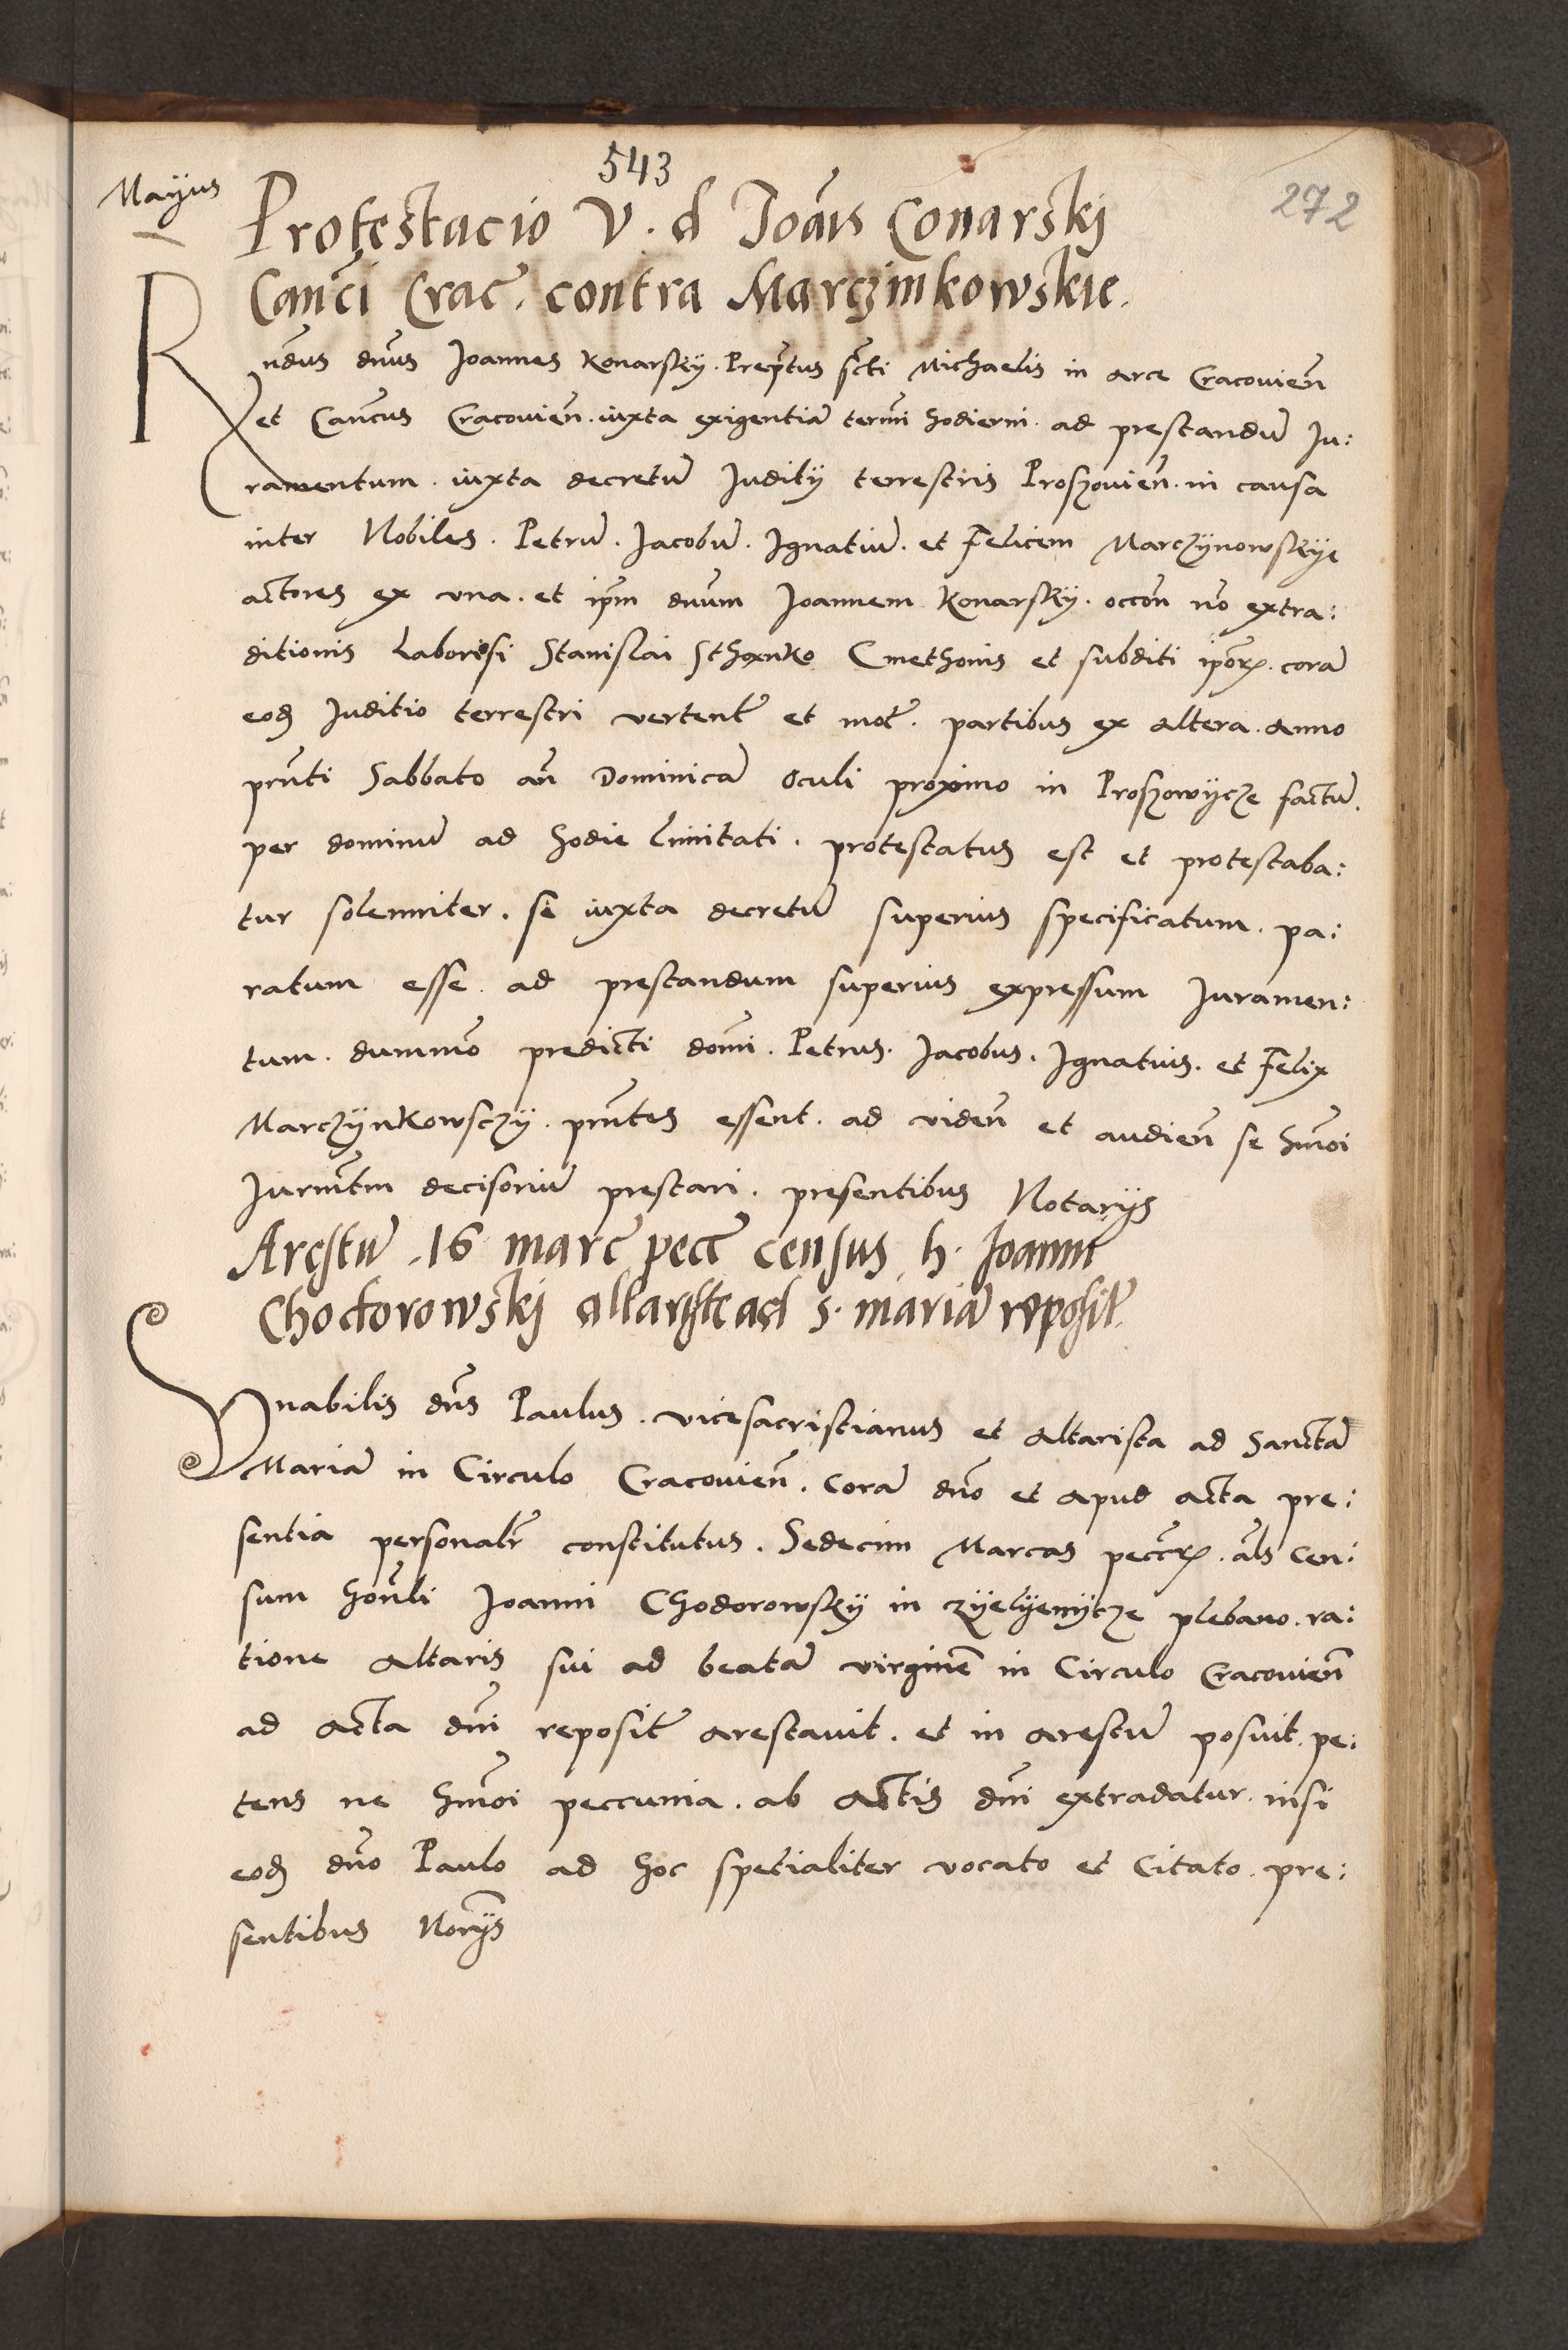 543
Mayus
272
Protestacio V. d Joañis Conarskj
Cañci Crac̃. contra Marczinkowskie.
Rñdus dñus Joannes Konarsky. Prep̃tus sc̃ti Michaelis in arce Cracouieñ
et Cañcus Cracouieñ. iuxta exigentiã term̃i hodierni. ad prestandũ Ju:
ramentum. iuxta decretũ Juditij terrestris Proszouieñ. in causa
inter Nobiles. Petrũ. Jacobũ. Ignatiũ. et Felicem Marczynowskye
actores ex vna. et ip̃m dñum Joannem Konarsky. occoñ nõ extra:
ditionis Laboriosi Stanislai Sthanko Cmethonis et subditi ip̃oꝝ. corã
eod̃ Juditio terrestri vertent̃ et mot̃. partibus ex altera. anno
pr̃nti Sabbato añ Dominicã Oculi proximo in Proszowycze factũ.
per dominũ ad hodie limitati. protestatus est et protestaba:
tur solenniter. se iuxta decretũ superius specificatum. pa:
ratum esse. ad prestandum superius expressum Juramen:
tum. dummõ predicti dom̃i. Petrus. Jacobus. Ignatius. et Felix
Marczynkowsczy. pr̃ntes essent. ad videñ et audieñ se hm̃oi
Jurm̃tm decisoriũ prestari. presentibus Notarijs
Arestũ .16 marc̃ pecc̃ census h. Joannis
Chodorowskj altaristę ad S. mariã reposit̃.
Vñabilis dñs Paulus. vicesacristianus et altarista ad Sanctã
Mariã in Circulo Cracouieñ. corã dño et apud acta pre:
sentia personalr̃ constitutus. Sedecim Marcas pecc̃ꝝ. als̃ cen:
sum hoñli Joanni Chodorowsky in zyelyenycze plebano. ra:
tione altaris sui ad beatã virginẽ in Circulo Cracouieñ
ad acta dñi reposit̃ arestauit. et in arestũ posuit. pe:
tens ne hm̃oi peccunia. ab actis dñi extradatur. nisi
eod̃ dño Paulo ad hoc spetialiter vocato et citato. pre:
sentibus Nor̃ijs